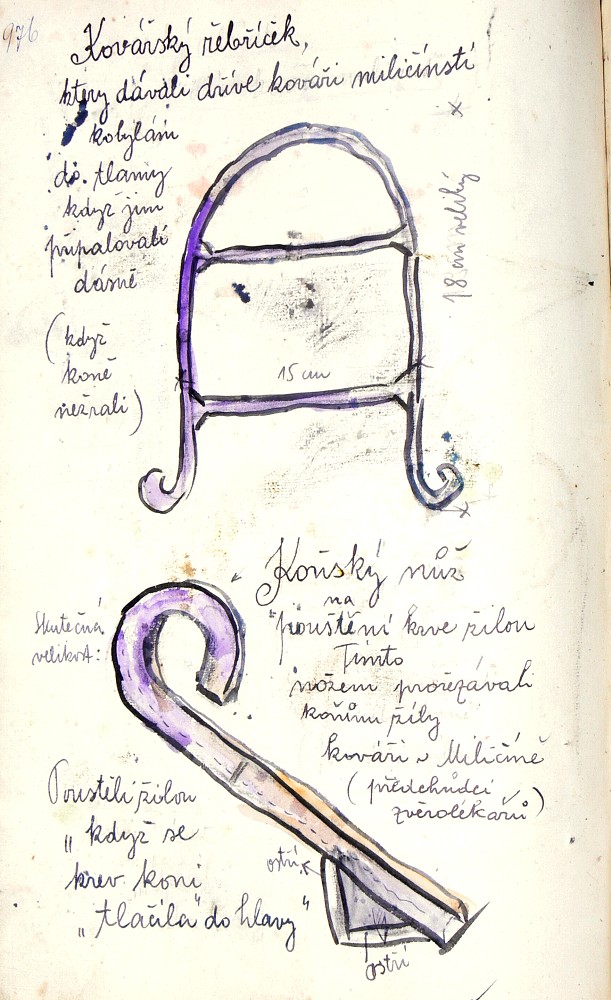 976
Kovářský řebříček,
ktery dávali dříve kováři miličínstí
kobylám
do tlamy
když jim
připalovali
dásně
(když
koně
nežrali)
18 cm veliký
15 cm
Koňský nůž
na
"pouštění krve žilou
Tímto
nožem prořezávali
koňům žíly
kováři v Miličíně
(předchůdci
zvěrolékařů)
Skutečná
velikost:
Pouštěli žilou
„když se
krev koni
„tlačila" do hlavy"
ostří
ostří